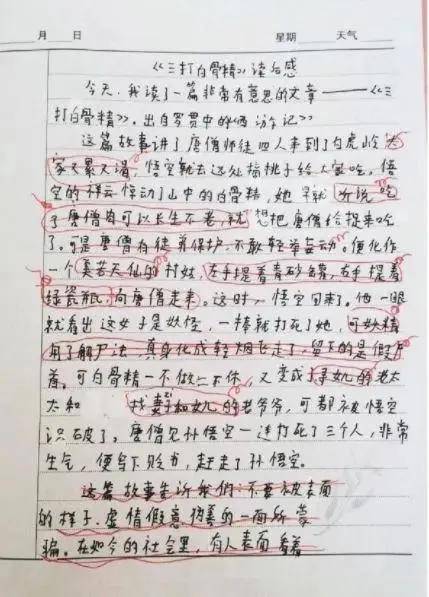 月 日 星期 天气
《三打白骨精》读后感
今天,我读了一篇非常有意思的文章——《三
打白骨精》,出自罗贯中的《西游记》
这篇故事讲了唐僧师徒四人来到了白虎岭,大
家又累又渴,悟空就去远处摘桃子给大家吃,悟
空的祥云惊动了山中的白骨精,她早就听说吃
了唐僧肉可以长生不老,就想把唐僧给捉来吃
了。可是唐僧有徒弟保护,不敢轻举妄动。便化作
一个美若天仙的村姑,左手提着青砂罐,右手提着
绿瓷瓶,向唐僧走来。这时,悟空回来了。他一眼
就看出这女子是妖怪,一棒就打死了她,可妖精
用了解尸法,真身化成轻烟飞走了,留下的是假尸
首。可白骨精一不做二不休,又变成了寻女儿的老太
太和 找妻子和女儿的老爷爷,可都被悟空
识破了。唐僧见孙悟空一连打死了三个人,非常
生气,便写下贬书,赶走了孙悟空。
这篇故事告诉我们:不要被表面
的样子、虚情假意伪善的一面所蒙
骗。在如今的社会里,有人表面看着